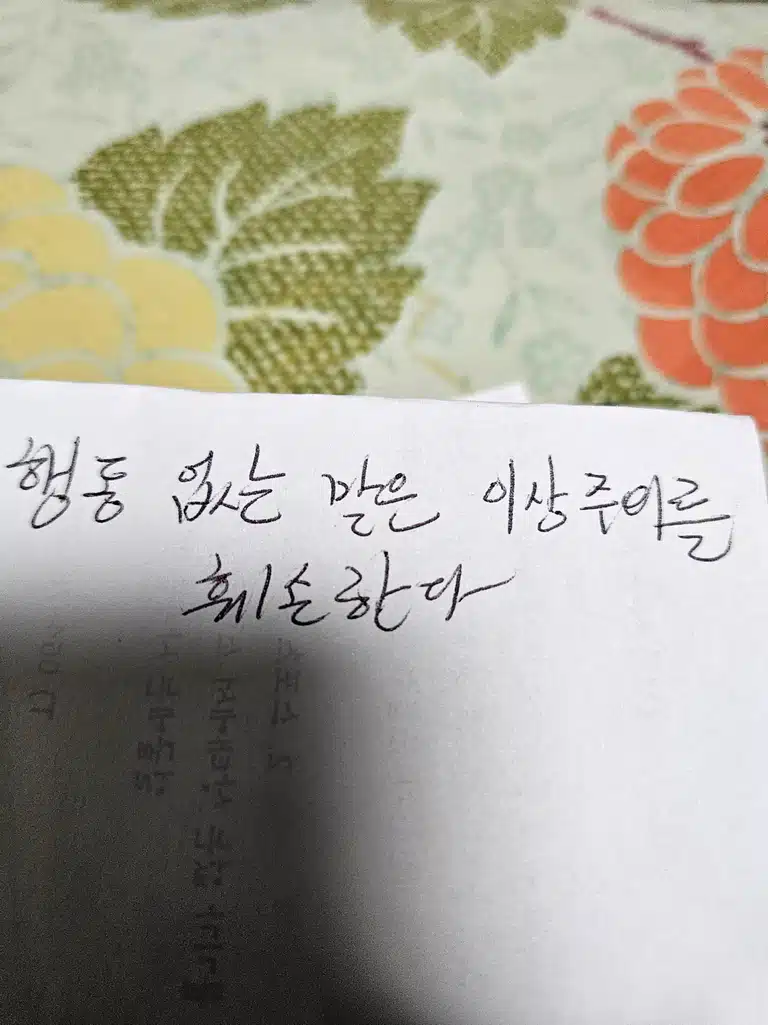 행동 없는 말은 이상주이를
훼손한다